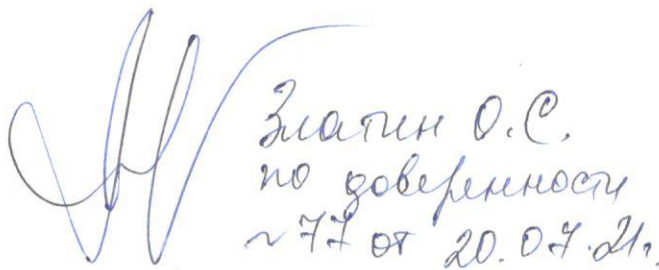 Златин О.С.
по доверенности
~77 от 20.07.21г.